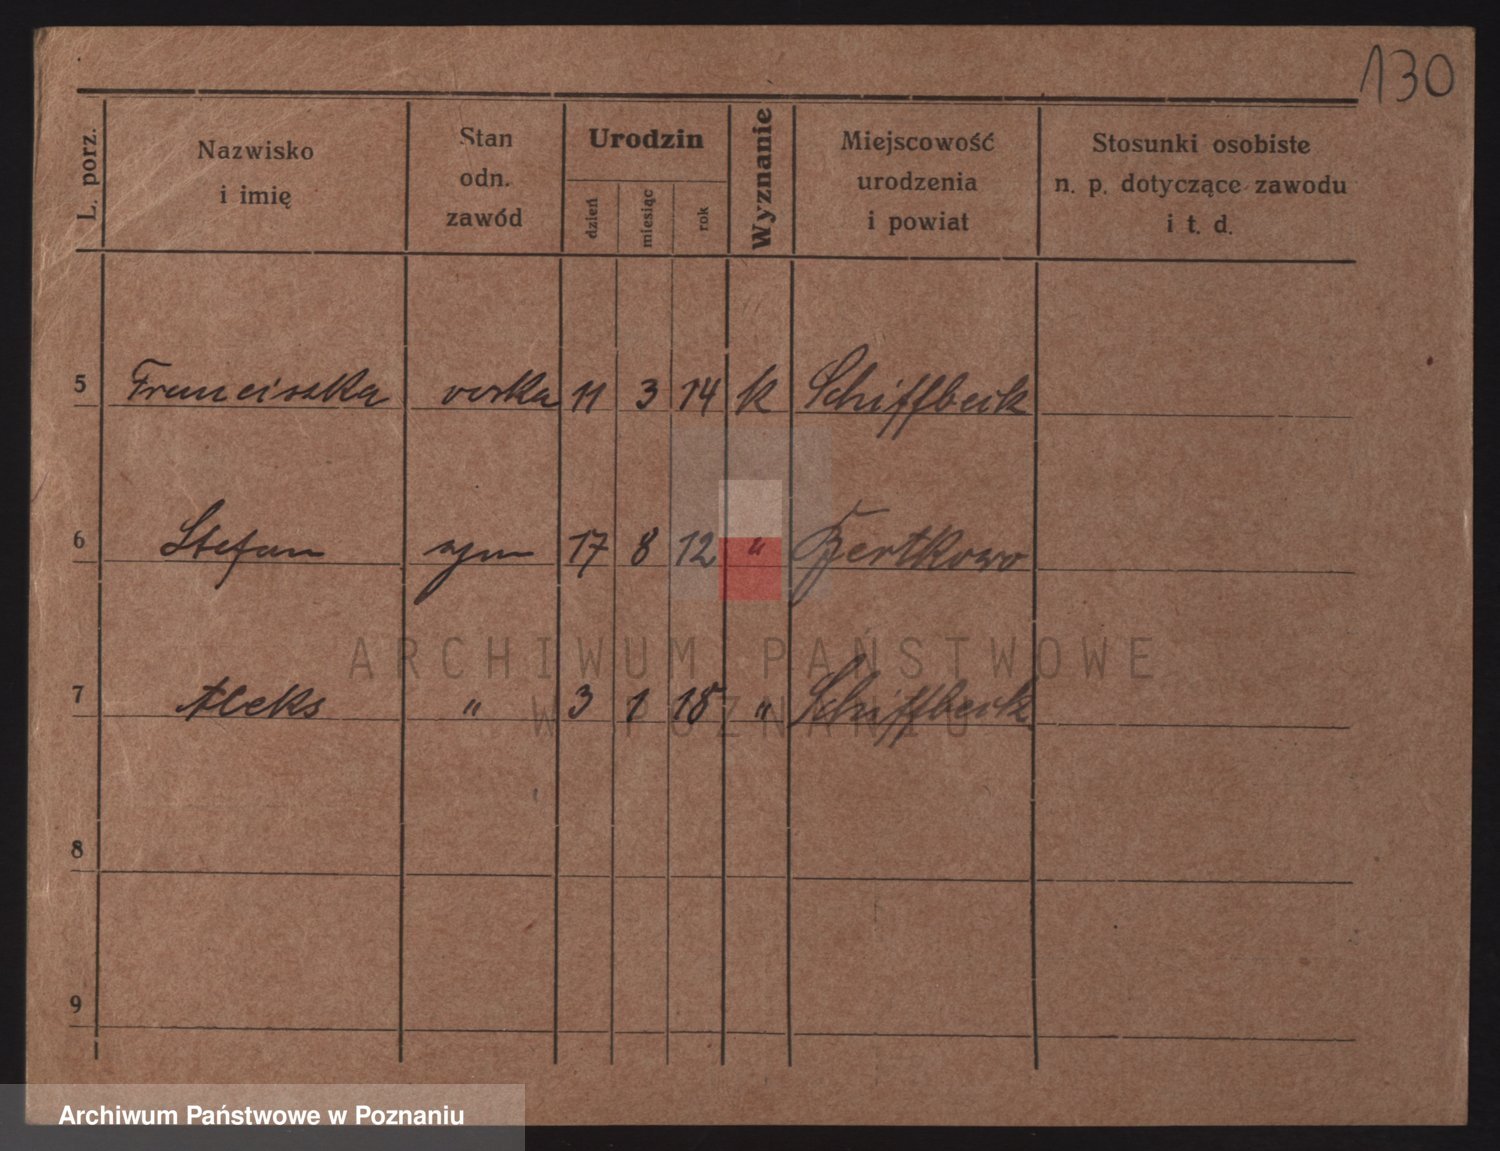 130
L. porz. Nazwisko i imię Stan odn. zawód Urodzin dzień miesiąc rok Wyznanie Miejscowość urodzenia i powiat Stosunki osobiste n. p. dotyczące zawodu i t. d.
5 Franciszka 11 3 14 k Schiffbeck
6 Stefan syn 17 8 12 "
ARCHIWUM PAŃSTWOWE
7 Aleks " 3 1 18 " Schiffbeck
W POZNANIU
8
9
Archiwum Państwowe w Poznaniu